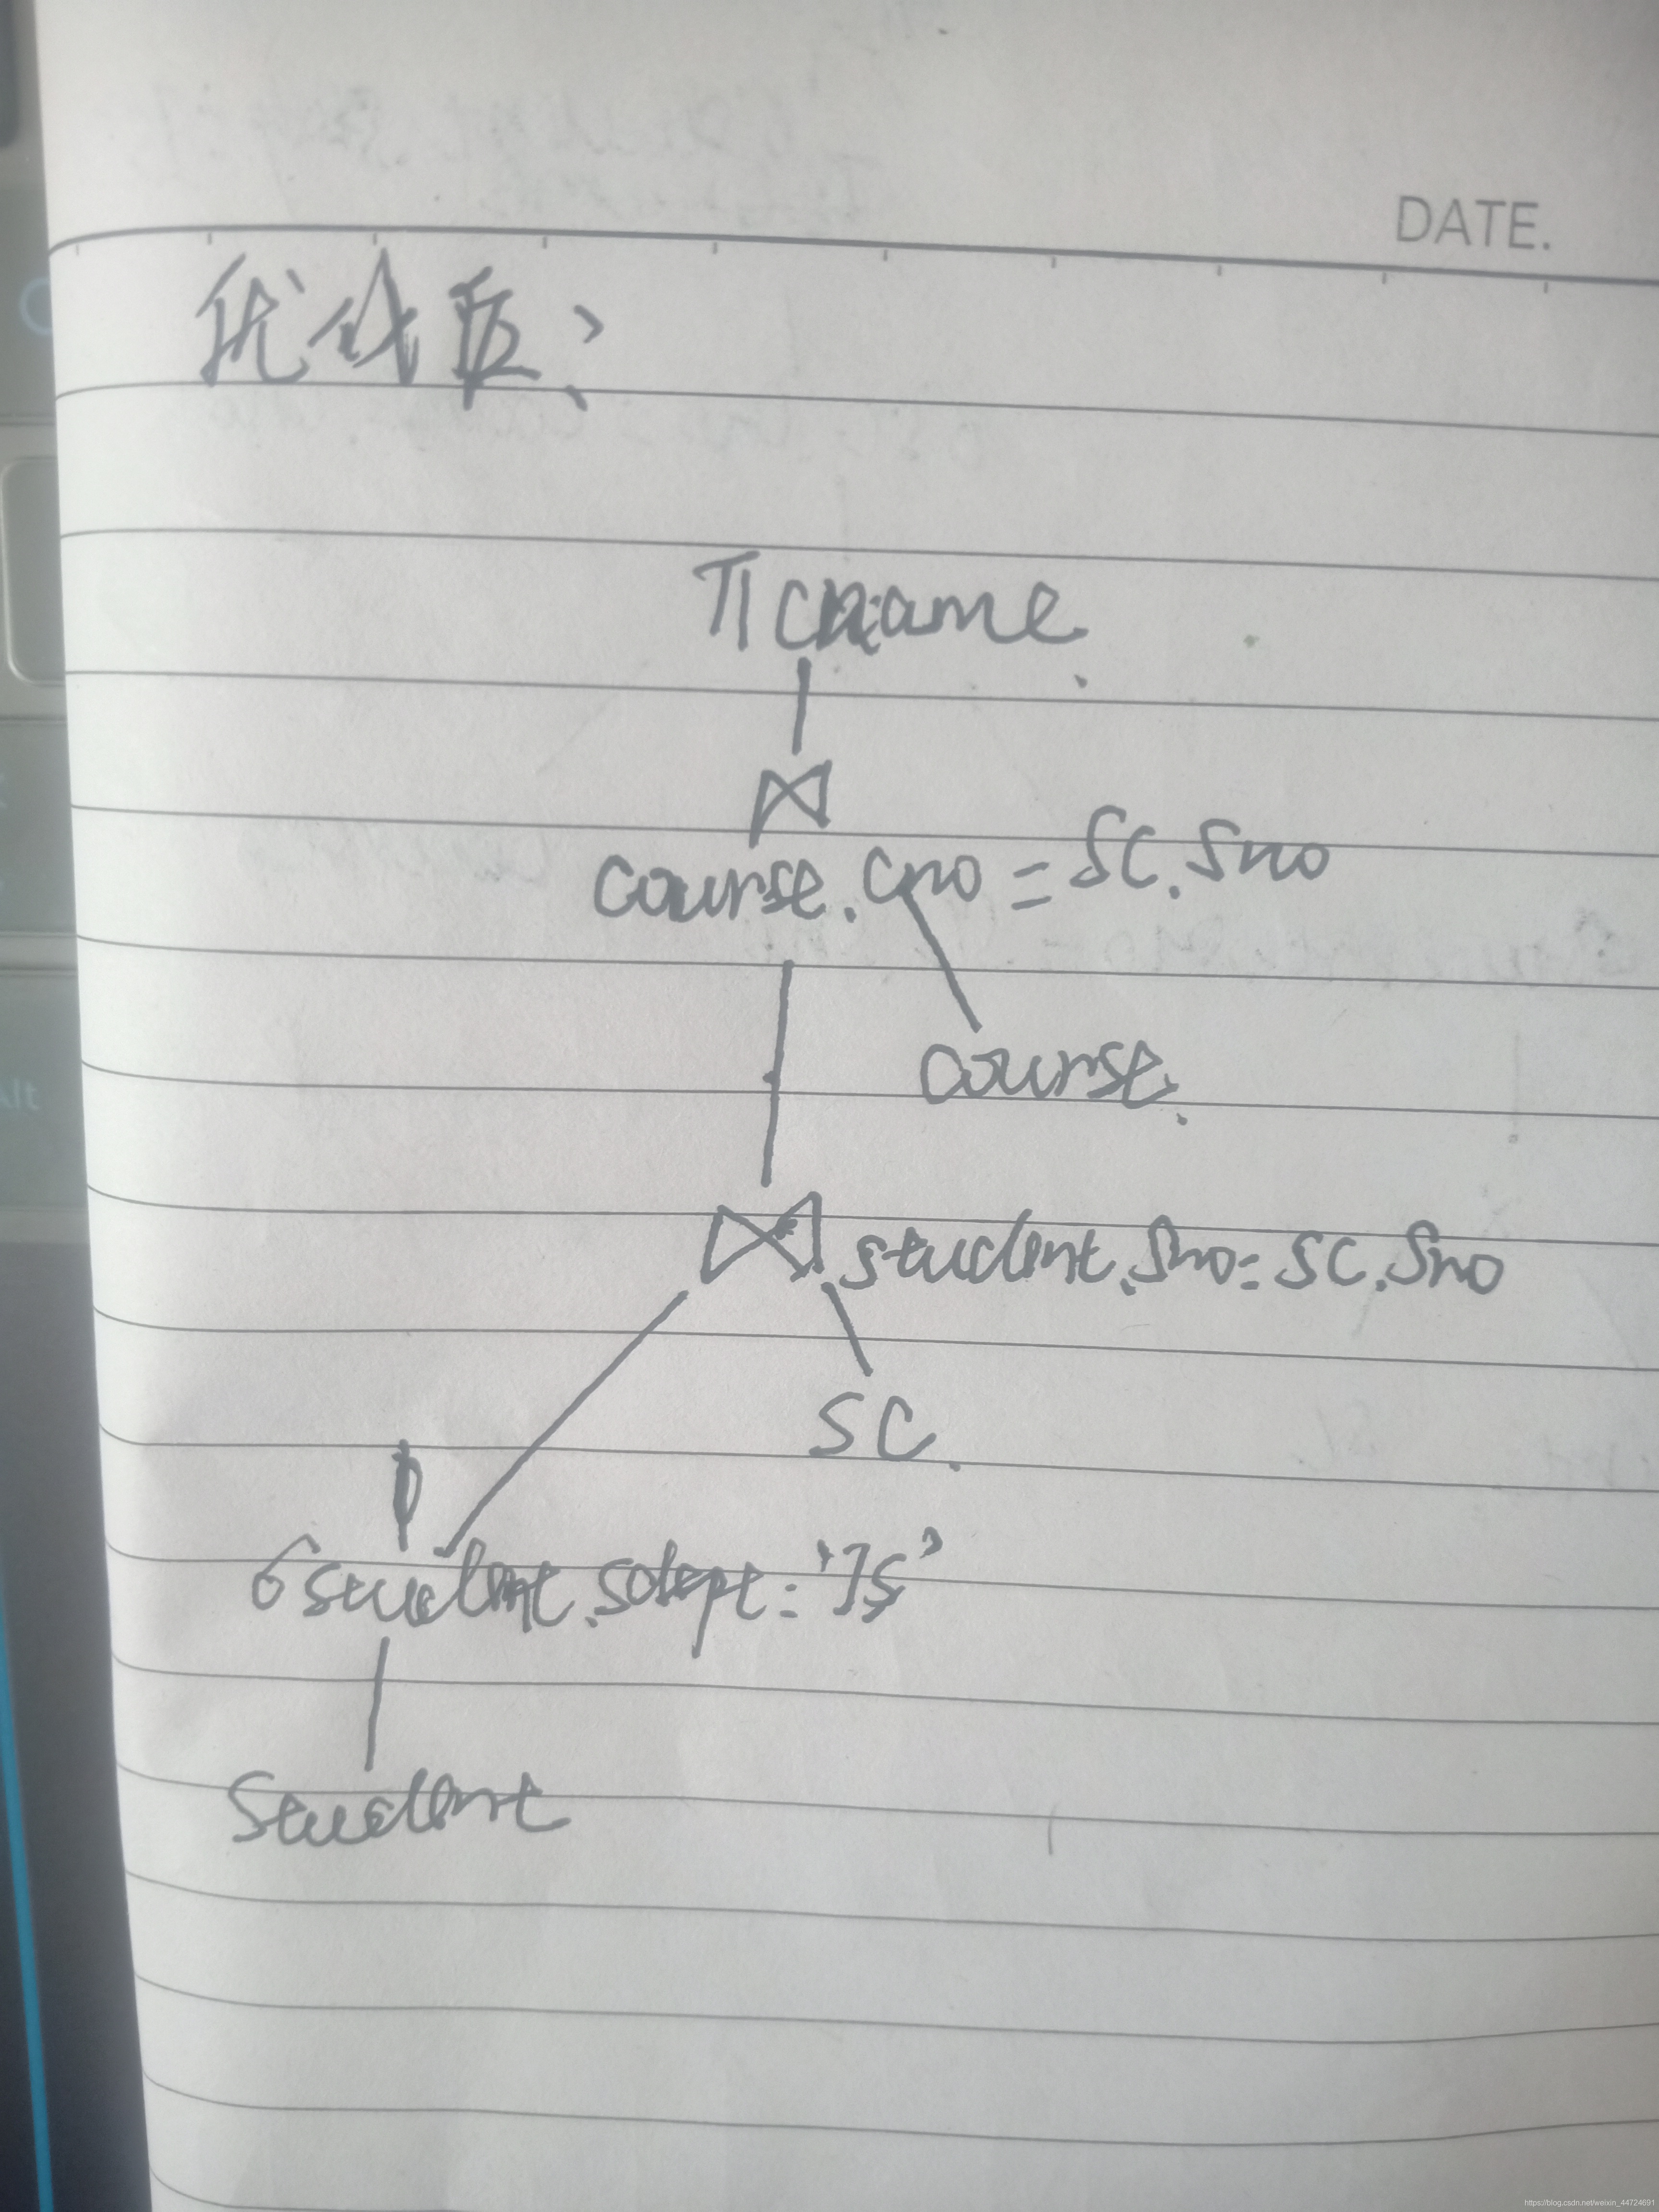 DATE.
优化后:
π cname
⋈
course.cno = SC.Sno
course.
⋈ student.Sno = SC.Sno
SC.
σ student.sdept = 'IS'
Student
https://blog.csdn.net/weixin_44724691